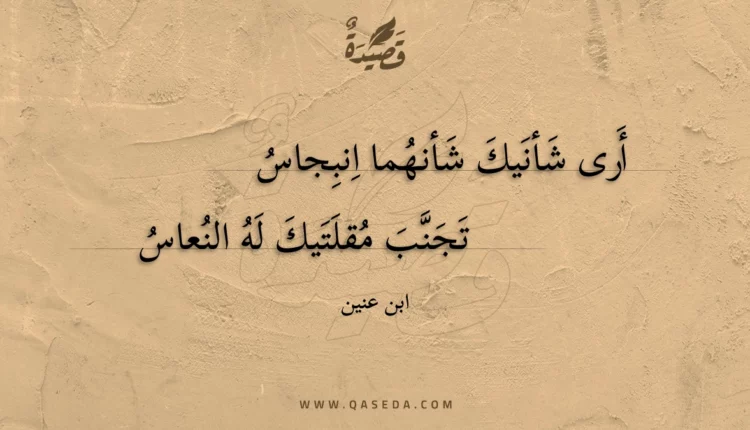 قَصِيدَةٌ
أَرى شَأنَيكَ شَأنهُما اِنبِجاسُ
تَجَنَّبَ مُقلَتَيكَ لَهُ النُعاسُ
ابن عنين
WWW.QASEDA.COM